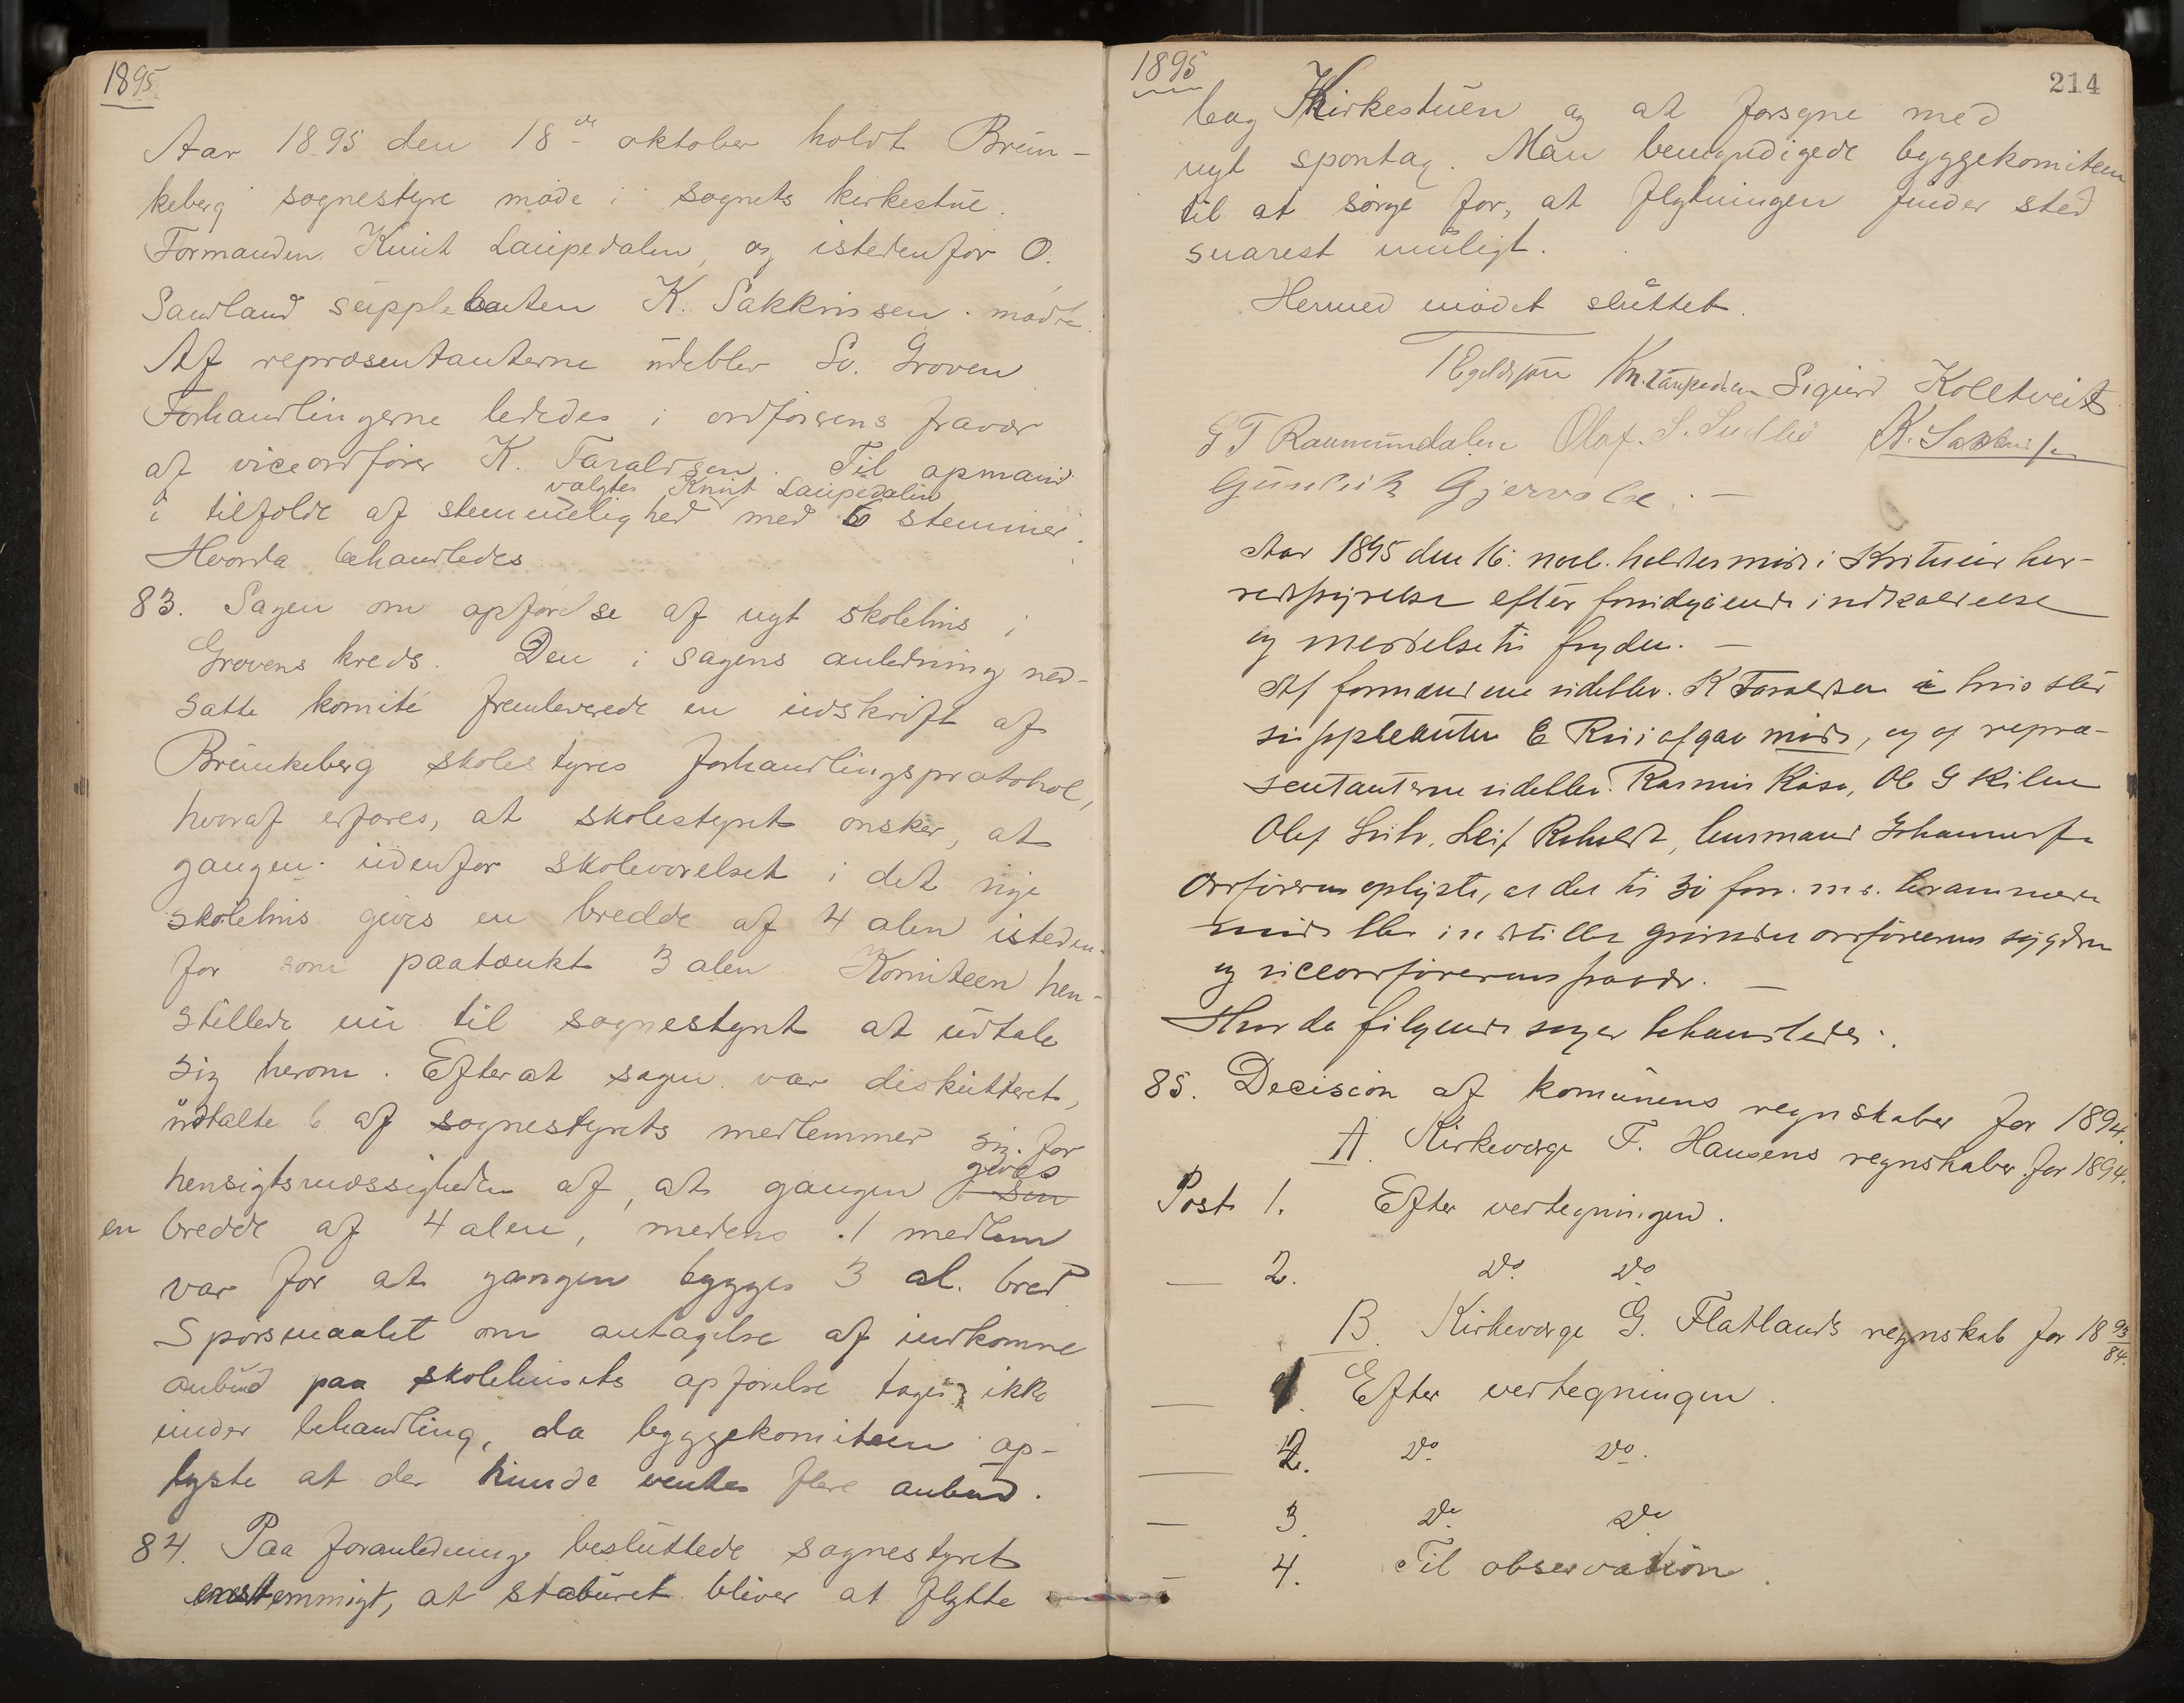 1895
Aar 1895 den 18de oktober holdt Brun-
keberg sognestyre møde i sognets kirkestue.
Formanden Knut Laupedalen, og istedenfor O.
Sandland suppleanten K. Sakkrissen mødte.
Af repræsentanterne udeblev Sv. Groven
Forhandlingerne lededes i ordførerens fravær
af viceordfører K. Taraldsen. Til opmand
valgtes Knut Laupedalen
i tilfælde af stemmelighed med 6 stemmer.
Hvorda behandledes
83. Sagen om opførelse af nyt skolehus i
Grovens kreds. Den i sagens anledning ned-
satte komite fremleverede en udskrift af
Brunkeberg skolestyres forhandlingsprotokol,
hvoraf erfares, at skolestyret ønsker, at
gangen udenfor skoleværelset i det nye
skolehus gives en bredde af 4 alen isteden-
for som paatænkt 3 alen Komiteen hen-
stillede nu til sognestyret at udtale
sig herom. Efterat sagen var diskutteret,
udtalte 6 af sognestyrets medlemmer sig for
hensigtsmæssigheden af, at gangen gives
en bredde af 4 alen, medens 1 medlem
var for at gangen bygges 3 al. bred
Spørsmaalet om antagelse af indkomne
anbud paa skolehusets opførelse toges ikke
under behandling, da byggekomiteen op-
lyste at der kunde ventes flere anbud.
84. Paa foranledning besluttede sognestyret
enstemmigt, at staburet bliver at flytte
1895
214
bag Kirkestuen og at forsyne med
nyt spontag. Man bemyndigede byggekomiteen
til at sørge for, at flytningen finder sted
snarest muligt.
Hermed mødet sluttet.
Kn. Laupedalen Sigurd Kolltveit
G T Raumundalen Olaf. S. K. Sakkrissen
Gunleik Gjervolæ. —
Aar 1895 den 16. novb. holdtes møde i Kviteseid her-
redsstyrelse efter forudgående indkaldelse
og meddelelse til fogden. —
Af formændene udeblev K Taraldsen i hvis sted
suppleanten E afgav møde, og af repræ-
sentanterne udeblev Rasmus Kåsa, Ole G Kilen
Olaf Leif Roholdt, lensmand Johannessen
Ordføreren oplyste, at det til 30 f. m. berammede
møde blev indstillet grundet ordførerens sygdom
og viceordførerens fravær. —
Hvor da følgende sager behandledes:
85. Decision af komunens regnskaber for 1894.
A. Kirkeværge F. Hansens regnskaber for 1894.
Post 1. Efter vedtegningen.
— 2. do do
B. Kirkeværge G. Flatlands regnskab for 1893/84.
— 1. Efter vedtegningen.
— 2. do do.
— 3. do do
— 4. Til observation.